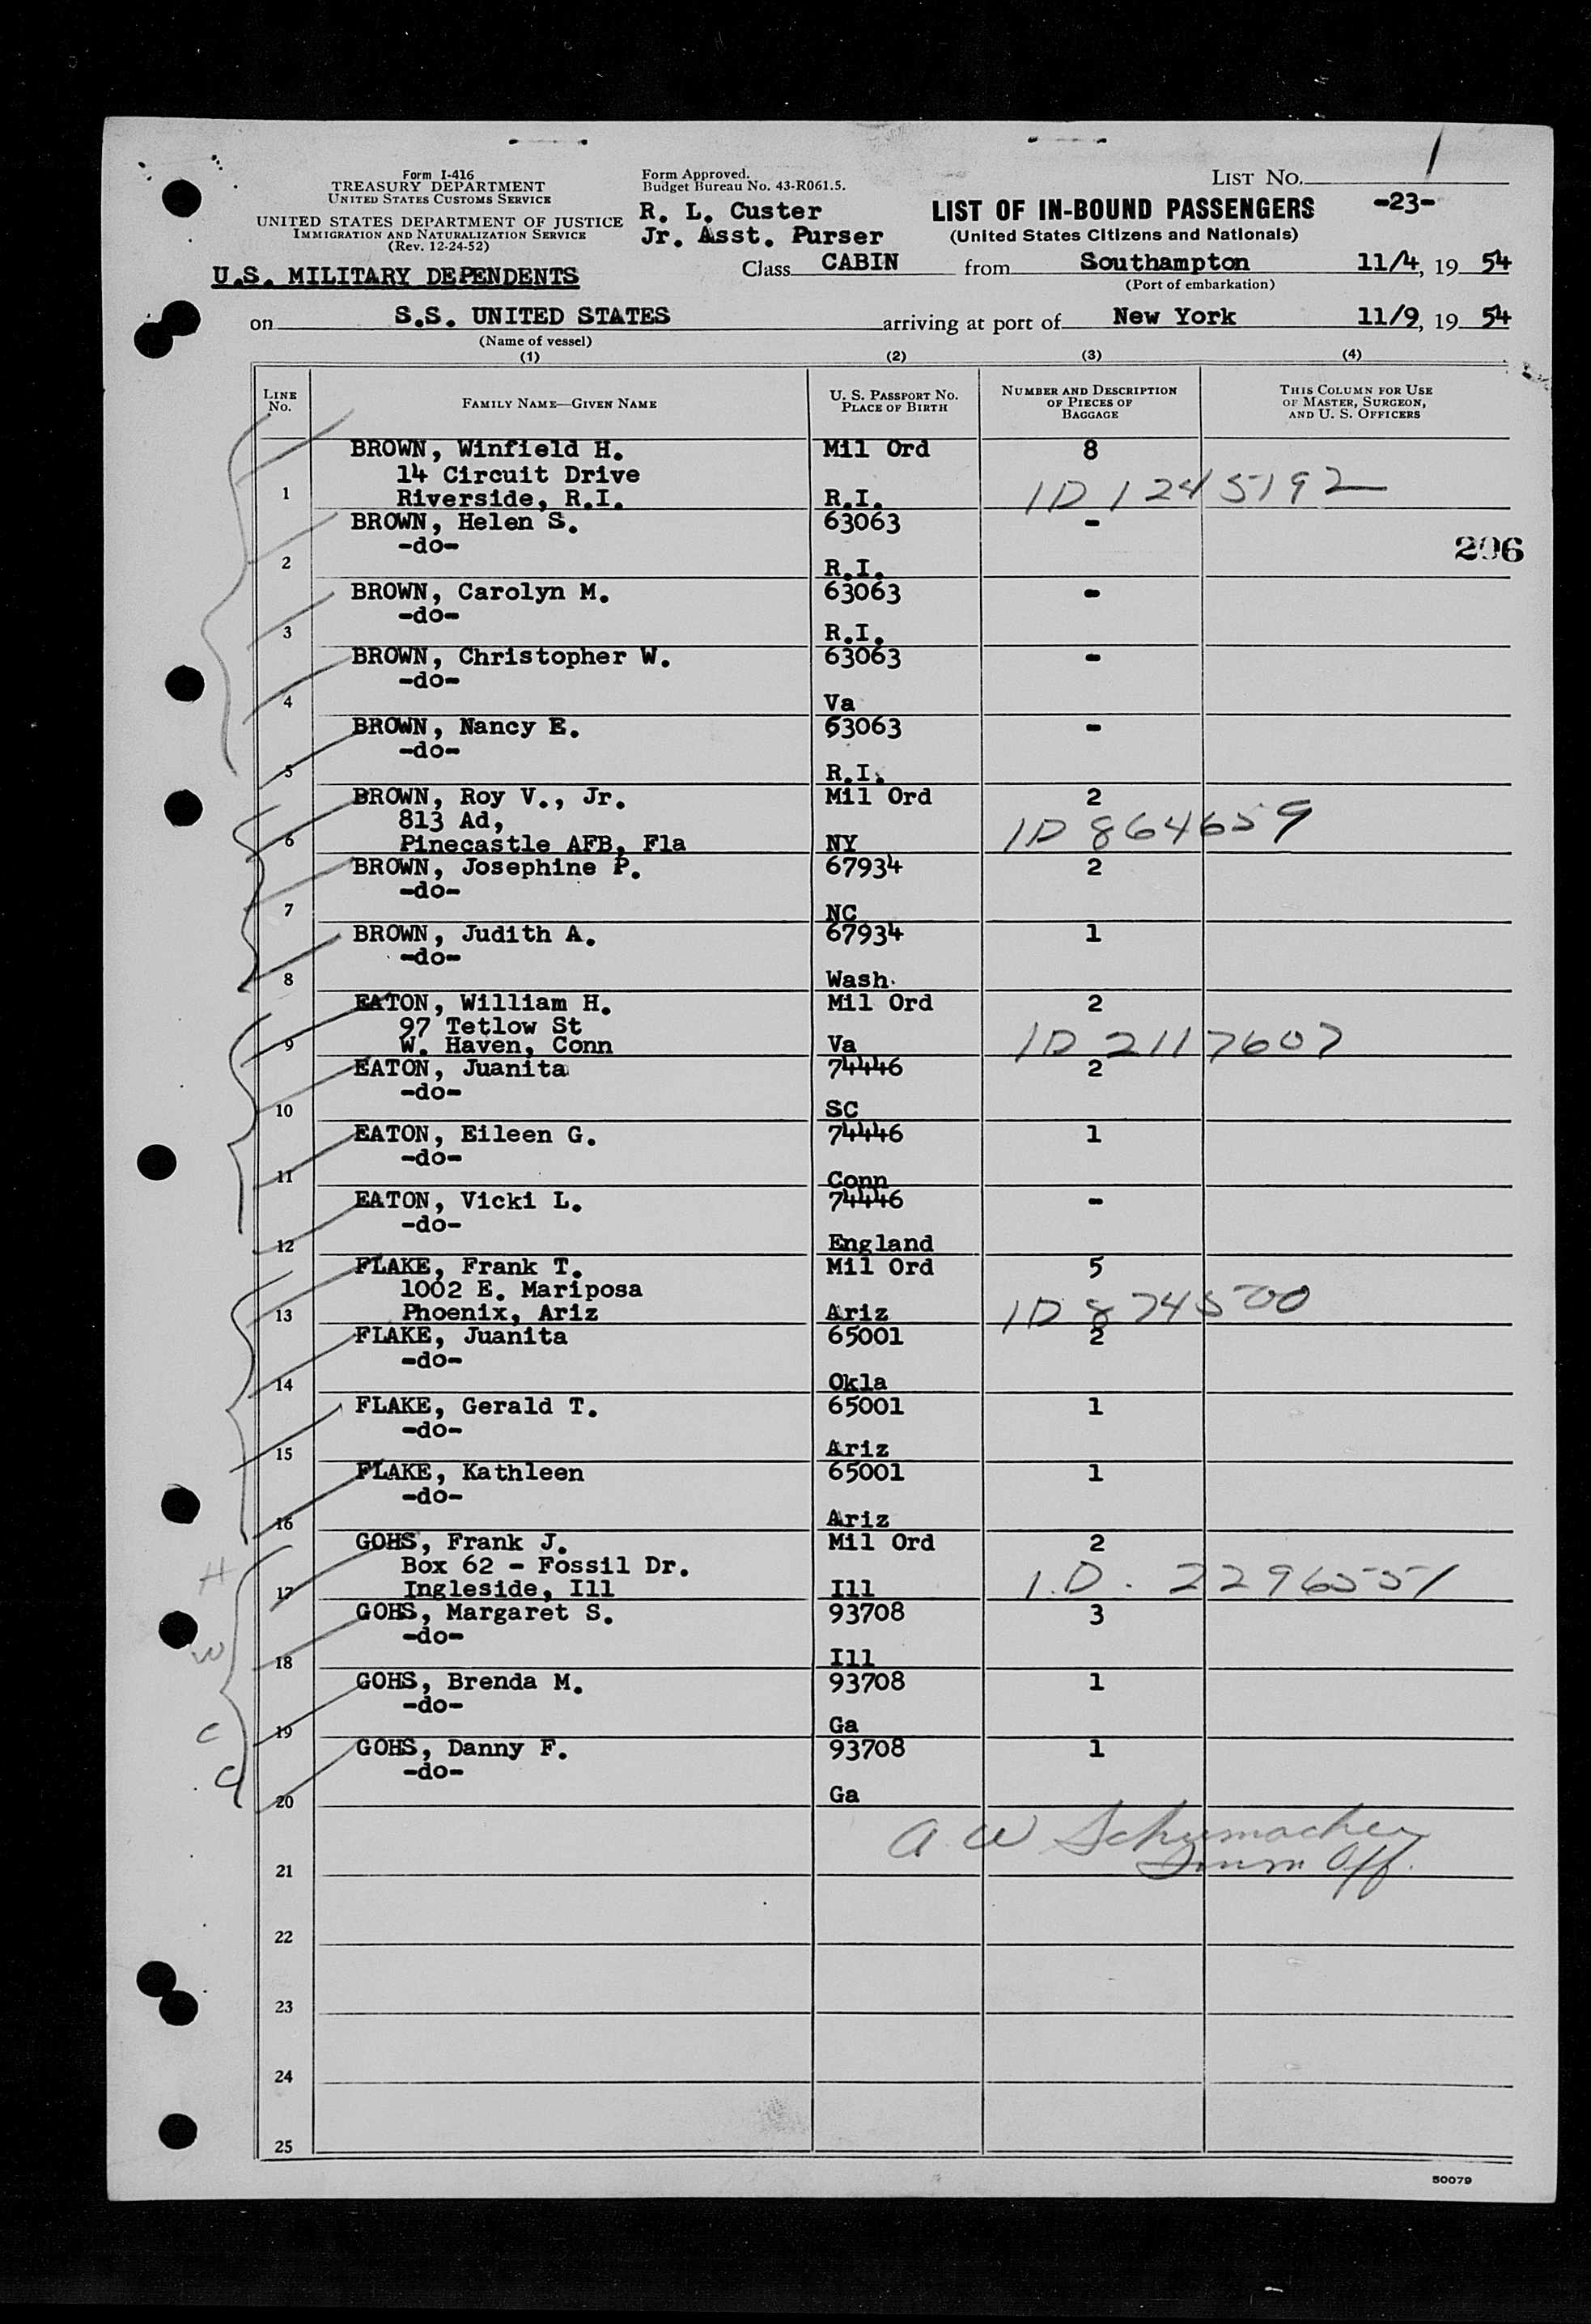 Form I-416
TREASURY DEPARTMENT
UNITED STATES CUSTOMS SERVICE
UNITED STATES DEPARTMENT OF JUSTICE
IMMIGRATION AND NATURALIZATION SERVICE
(Rev. 12-24-52)
U.S. MILITARY DEPENDENTS
Form Approved.
Budget Bureau No. 43-R061.5.
R. L. Custer
Jr. Asst. Purser
LIST No. 1
-23-
LIST OF IN-BOUND PASSENGERS
(United States Citizens and Nationals)
Class CABIN from Southampton 11/4, 19 54
(Port of embarkation)
on S.S. UNITED STATES arriving at port of New York 11/9, 19 54
(Name of vessel)
(1) (2) (3) (4)
LINE No. FAMILY NAME—GIVEN NAME U. S. PASSPORT No. PLACE OF BIRTH NUMBER AND DESCRIPTION OF PIECES OF BAGGAGE THIS COLUMN FOR USE OF MASTER, SURGEON, AND U. S. OFFICERS
BROWN, Winfield H. Mil Ord 8
14 Circuit Drive
1 Riverside, R.I. R.I. ID 1245192
BROWN, Helen S. 63063 -
-do-
296
2 R.I.
BROWN, Carolyn M. 63063 -
-do-
3 R.I.
BROWN, Christopher W. 63063 -
-do-
4 Va
BROWN, Nancy E. 63063 -
-do-
5 R.I.
BROWN, Roy V., Jr. Mil Ord 2
813 Ad,
6 Pinecastle AFB, Fla NY ID 864659
BROWN, Josephine P. 67934 2
-do-
7 NC
BROWN, Judith A. 67934 1
-do-
8 Wash.
EATON, William H. Mil Ord 2
97 Tetlow St
9 W. Haven, Conn Va ID 2117607
EATON, Juanita 74446 2
-do-
10 SC
EATON, Eileen G. 74446 1
-do-
11 Conn
EATON, Vicki L. 74446 -
-do-
12 England
FLAKE, Frank T. Mil Ord 5
1002 E. Mariposa
13 Phoenix, Ariz Ariz ID 874500
FLAKE, Juanita 65001 2
-do-
14 Okla
FLAKE, Gerald T. 65001 1
-do-
15 Ariz
FLAKE, Kathleen 65001 1
-do-
16 Ariz
GOHS, Frank J. Mil Ord 2
H Box 62 - Fossil Dr.
17 Ingleside, Ill Ill I.D. 2296551
GOHS, Margaret S. 93708 3
-do-
W
18 Ill
GOHS, Brenda M. 93708 1
-do-
C
19 Ga
GOHS, Danny F. 93708 1
-do-
C
20 Ga
A W Schumacher
21 Imm Off.
22
23
24
25
50079